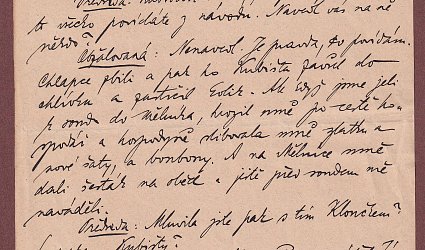 to všecko povídáte z návodu. Navedl vás na ně
někdo?
Obžalovaná: Nenavedl. Je pravda, to povídám.
Chlapce zbili a pak ho Kubišta zavřel do
chlívku a zastrčil kolík. Ale když jsme jeli
k soudu do Mělníka, hrozil mně po cestě ho-
spodář a hospodyně slibovala mně zlatku a
nové šaty, a bonbony. A na Mělníce mně
dali šesták na oběd a ještě před soudem mě
naváděli.
Předseda: Mluvila jste pak s tím Klončem?
Kubišty